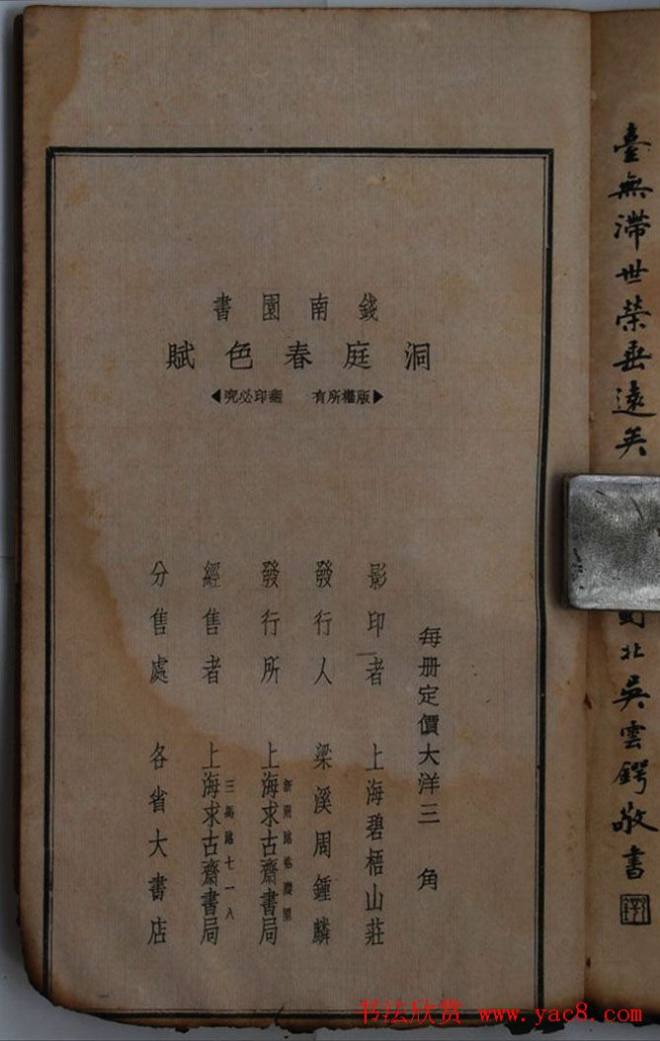 臺無滯世榮垂遠矣
北吳雲鍔敬書
錢南園書
洞庭春色賦
版權所有 翻印必究
每册定價大洋三角
影印者 上海碧梧山莊
發行人 梁溪周鍾麟
發行所 上海求古齋書局
經售者 上海求古齋書局
三馬路七一八
分售處 各省大書店
书法欣赏 www.yac8.com